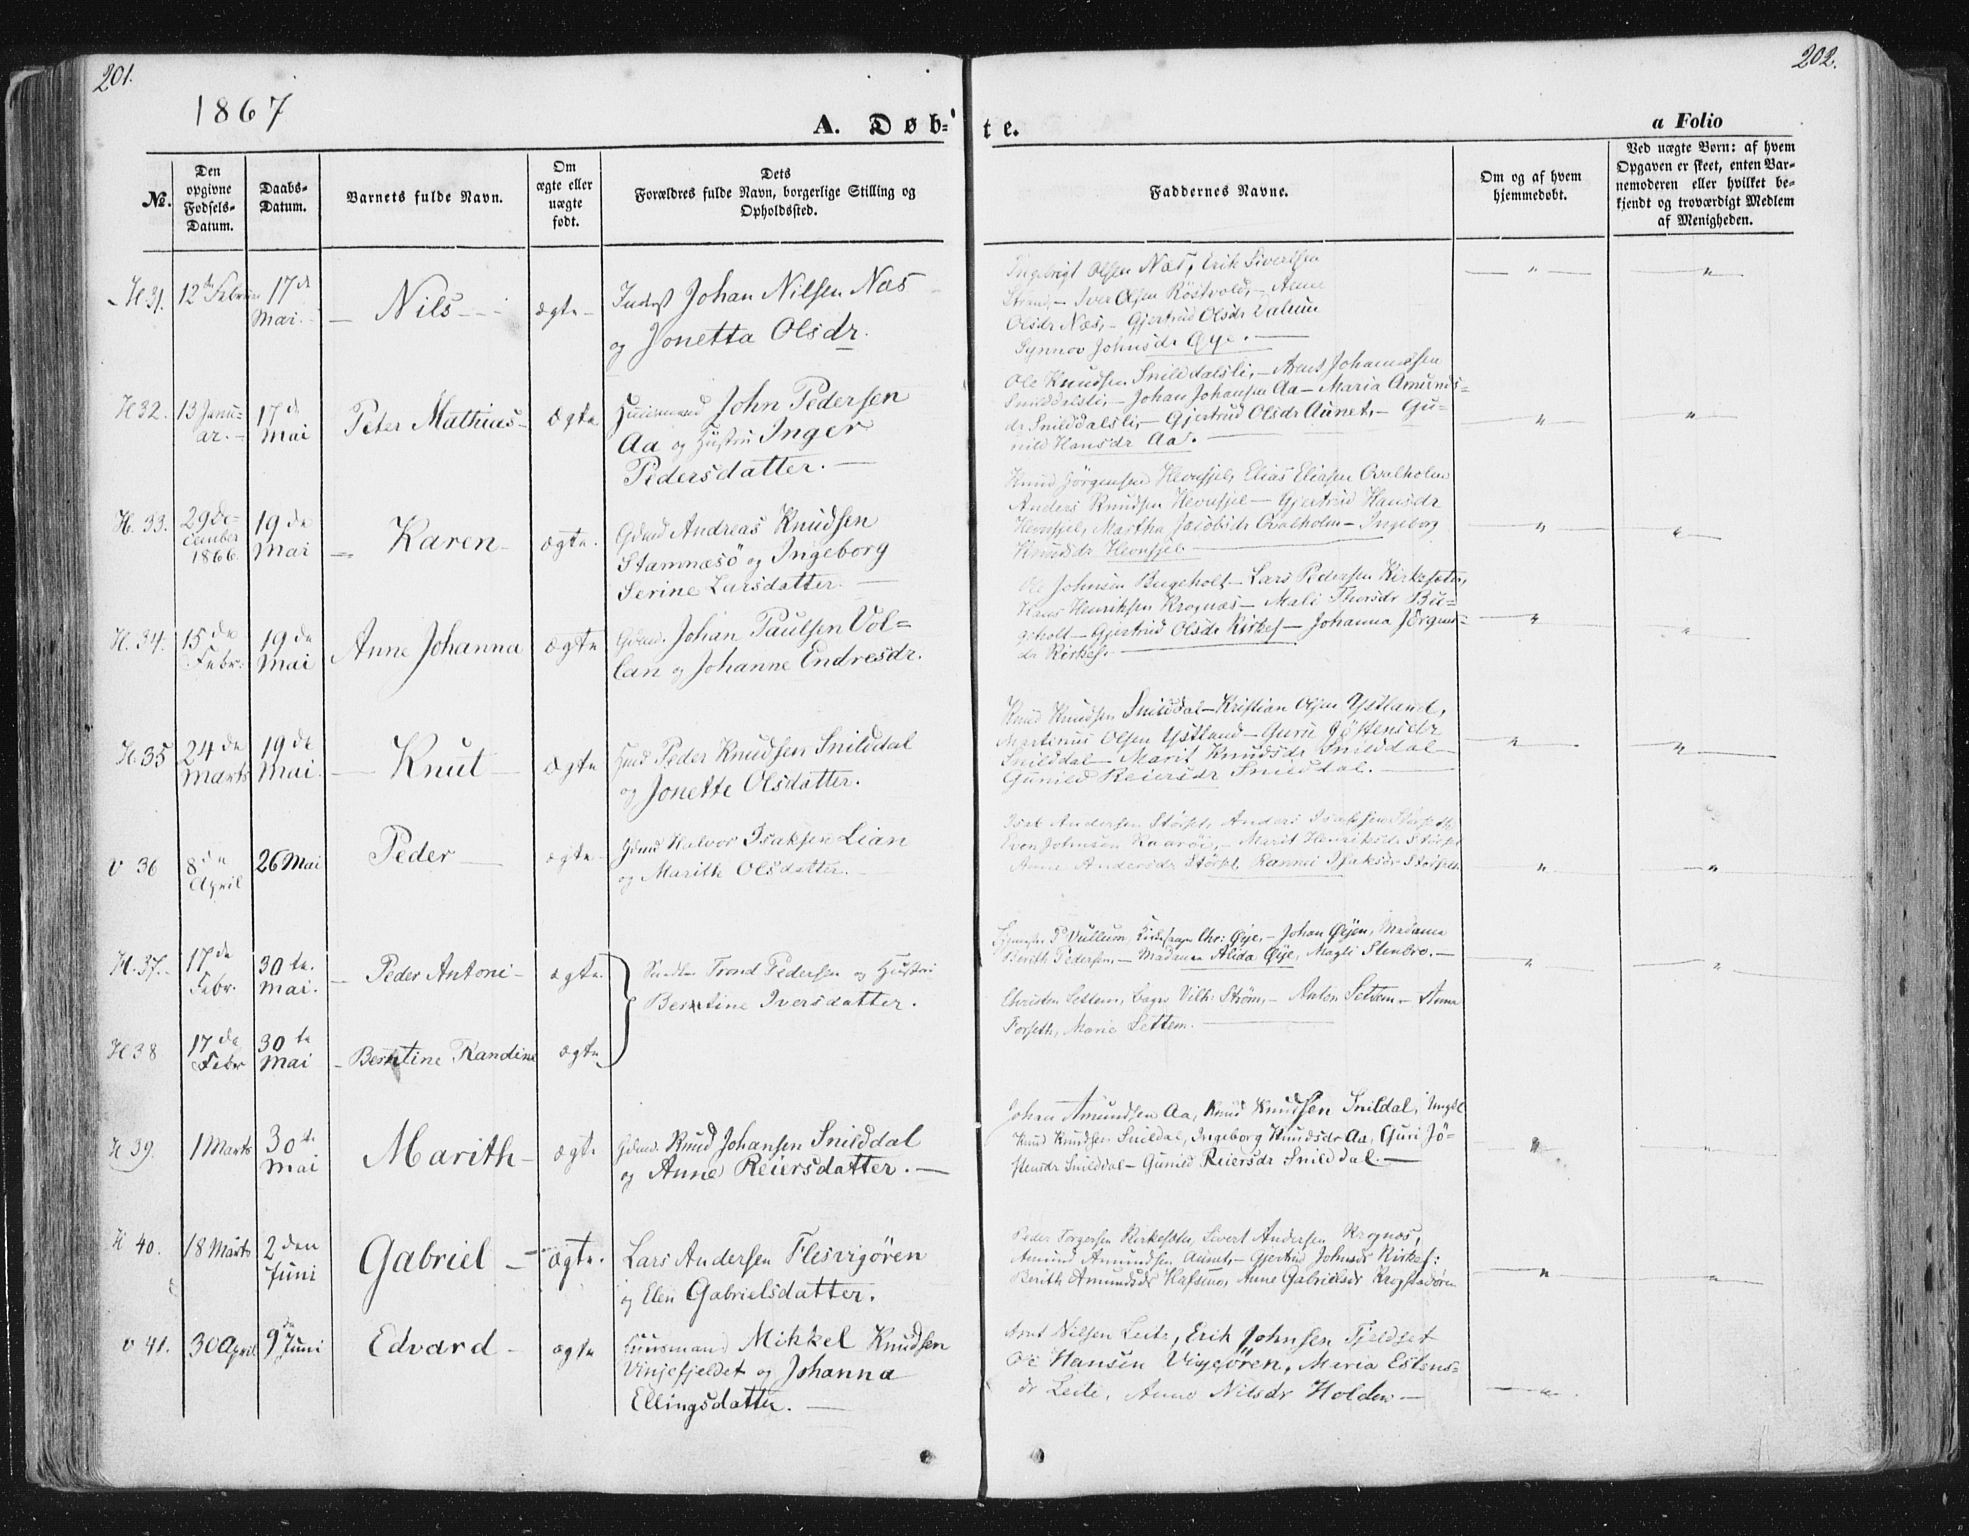 201.
202.
1867
A. Døb-
te.
a Folio
No.
Den opgivne Fødsels-Datum.
Daabs-Datum.
Barnets fulde Navn.
Om ægte eller uægte født.
Dets Forældres fulde Navn, borgerlige Stilling og Opholdssted.
Faddernes Navne.
Om og af hvem hjemmedøbt.
Ved uægte Børn: af hvem Opgaven er skeet, enten Barnemoderen eller hvilket bekjendt og troværdigt Medlem af Menigheden.
H 31. 12te Februar 17de Mai. Nils ægte
Johan Nilsen Næs
og Jonetta Olsdr.
Ingebrigt Olsen Næs, Erik Sivertsen
Strand, Iver Olsen Röstvold, Anne
Olsdr Næs, Gjertrud Olsdr Dalum
Synnov Johnsdr Øye.
H 32. 13 Januar. 17de Mai Peter Mathias ægte
Huusmand John Pedersen
Aa og Hustru Inger
Pedersdatter.
Ole Knudsen Snilddalsli, Arnt Johannsen
Snilddalsli, Johan Johansen Aa Maria Amunds-
dr Snilddalsli, Gjertrud Olsdr Aunet, Gu-
nild Hansdr Aa.
H. 33. 29 December 1866. 19de Mai Karen ægte.
Gdmd Andreas Knudsen
Stamnæsö og Ingeborg
Serine Larsdatter.
Knud Jörgensen Hevnsjel, Elias Eliasen Ovalholm
Anders Knudsen Hevnsjel Gjertrud Hansdr
Hevnsjel, Martha Jacobsdr Ovalholm Ingeborg
Knudsdr Hevnsjel
H. 34. 15de Febr. 19de Mai Anne Johanna ægte
Gdmd. Johan Paulsen Vol-
lan og Johanne Endresdr.
Ole Johnsen Bugeholt Lars Pedersen Kirkesæter,
Hans Henriksen Krognæs Mali Thorsdr Bu-
geholt Gjertrud Olsdr Kirkes Johanna Jörgens-
dr Kirkes.
H. 35 24de Marts 19de Mai. Knut ægte
Gmd Peder Knudsen Snilddal
og Jonette Olsdatter.
Knud Knudsen Snilddal Kristian Olsen Ystland,
Martinus Olsen Ystland Guru Jöstensdr
Snilddal Marit Knudsdr Snilddal
Gunild Reiersdr Snilddal.
V 36 8de April 26 Mai Peder ægte
Gdmd Halvor Isaksen Lian
og Marith Olsdatter.
Isak Andersen Störset, Anders Isaksen Störseth
Even Johnsen Marit Henriksdr Störset
Anne Andersdr Störset, Rannei Isaksdr Störseth
H. 37. 17de Febr. 30te Mai. Peder Antoni ægte
Trond Pedersen og Hustru
Berntine Iversdatter.
P Vullum, Chr: Øye, Johan Øyen, Madame
Berith Pedersen, Madame Alida Øye, Magli Stenbro.
H 38 17de Febr 30te Mai Berntine Randine ægte
Christen Settem, Vilh: Strøm, Anton Settem Anna
Forseth, Marie Settem.
H 39. 1 Marts 30te Mai Marith ægte
Gdmd. Knud Johansen Snilddal
og Anne Reiersdatter.
Johan Amundsen Aa, Knud Knudsen Snildal,
Knud Knudsen Snildal, Ingeborg Knudsdr Aa, Guri Jö-
stensdr Snilddal Gunild Reiersdr Snilddal.
H 40. 18 Marts 2den Juni Gabriel ægte.
Lars Andersen Flesvigören
og Elen Gabrielsdatter.
Peder Torgersen Kirkesæter, Sivert Andersen Krognæs,
Amund Amundsen Aunet, Gjertrud Johnsdr Kirkes:
Berith Amundsdr Hafsmo, Anne Gabrielsdr Krogstadören
V 41. 30 April 9de Juni Edvard ægte
Huusmand Mikkel Knudsen
Vinjefjeldet og Johanna
Ellingsdatter.
Arnt Nilsen Leite, Erik Johnsen Fjeldset
Ole Hansen Vigesören, Maria Estens-
dr Leite, Anne Nilsdr Holden